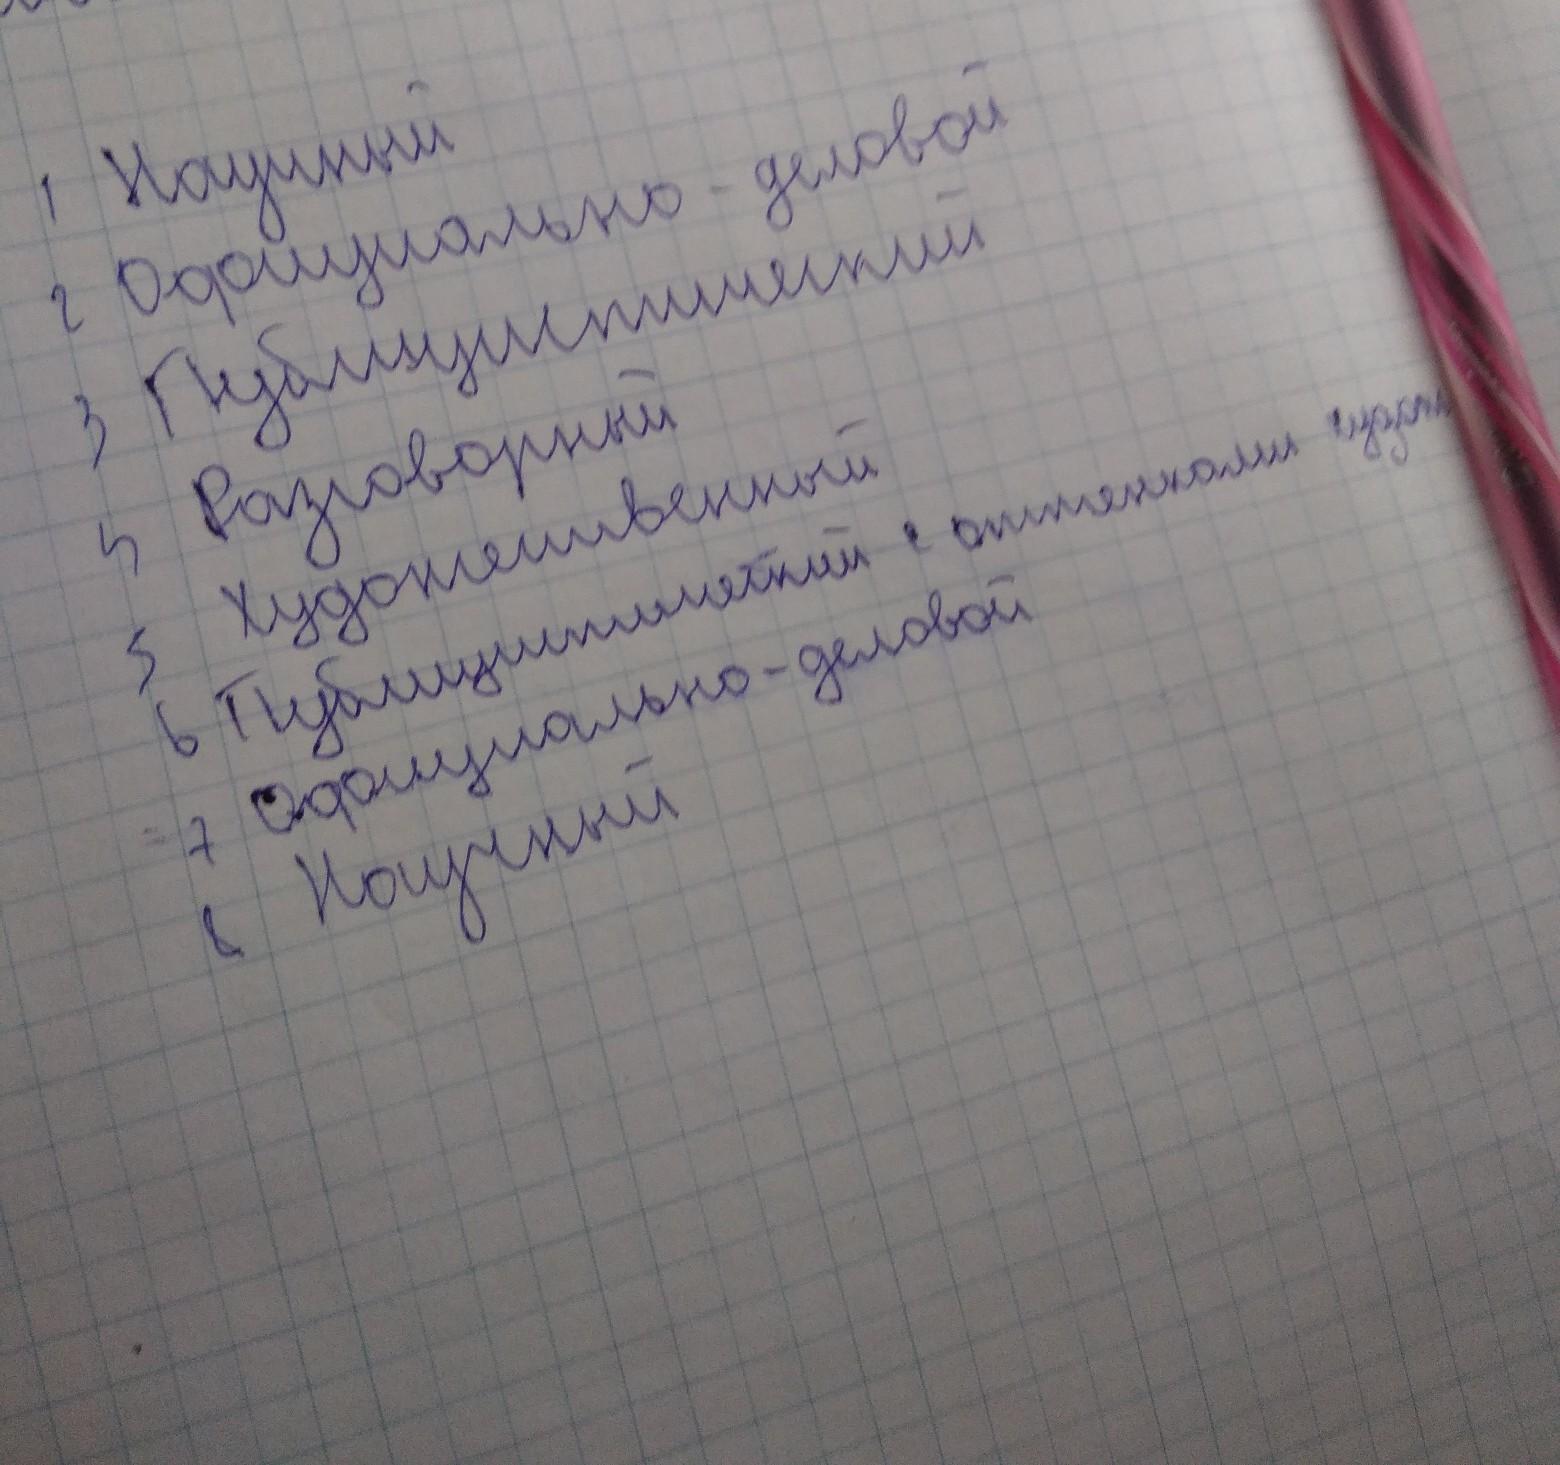 1 Научный
2 Официально-деловой
3 Публицистический
4 Разговорный
5 Художественный
6 Публицистический с оттенками
7 Официально-деловой
8 Научный